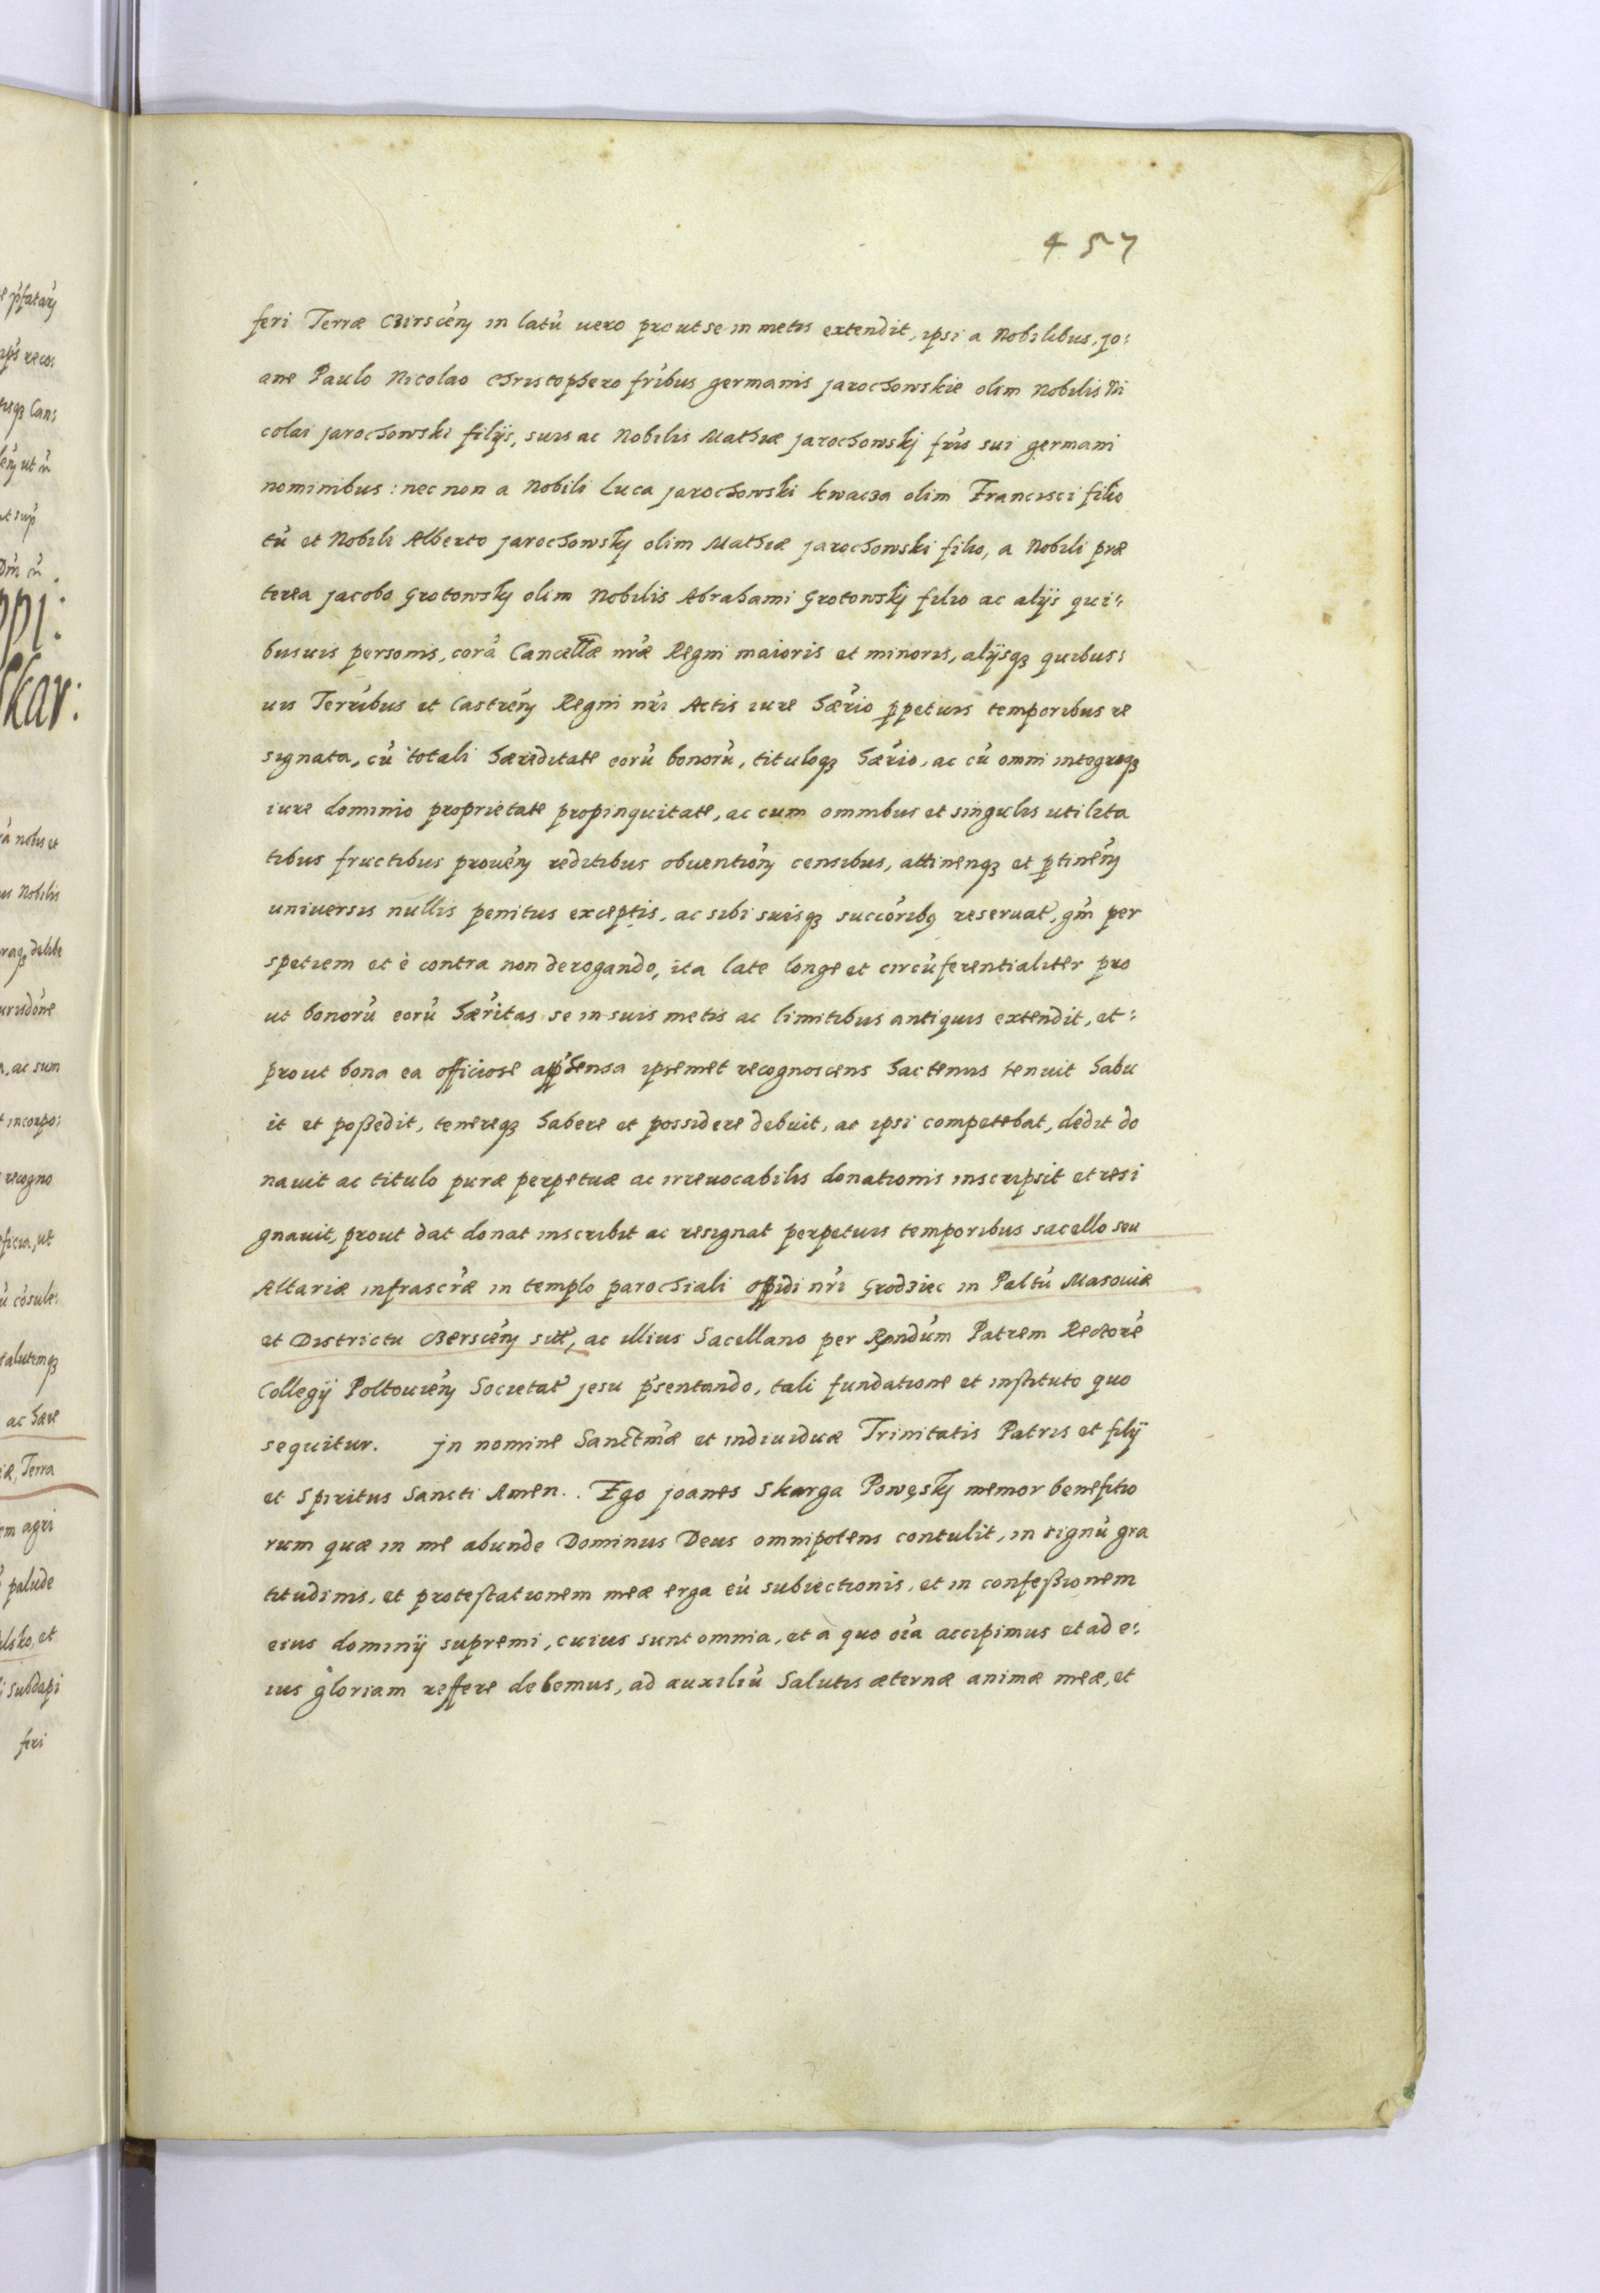 457
feri Terræ Czirscen̄ in latū uero prout se in metis extendit, ipsi a Nobilibus, Jo:
ane Paulo Nicolao Christophero fr̄ibus germanis Jarochowskie olim Nobilis Ni
colai Jarochowski filijs, suis ac Nobilis Mathiæ Jarochowskÿ fr̄is sui germani
nominibus: nec non a Nobili Luca Jarochowski kwacza olim Francisci filio
tū et Nobili Alberto Jarochowskÿ olim Mathiæ Jarochowski filio, a Nobili præ
terea Jacobo Grotowskÿ olim Nobilis Abrahami Grotowskÿ filio ac alijs qui:
busuis personis, corā Cancell̄æ nr̄æ Regni maioris et minoris, alijsqꝫ quibus:
uis Terr̄ibus et Castren̄ Regni nr̄i Actis iure hær̄io ꝑpetuis temporibus re
signata, cū totali hæreditate eorū bonorū, tituloqꝫ hær̄io, ac cū omni integroqꝫ
iure dominio proprietate propinquitate, ac cum omnibus et singulis utilita
tibus fructibus prouen̄ reditibus obuention̄ censibus, attinenqꝫ et ꝑtinen̄
uniuersis nullis penitus exceptis, ac sibi suisqꝫ succōribꝫ reseruat̄, gn̄m per
spetiem et è contra non derogando, ita late longe et circūferentialiter pro
ut bonorū eorū hær̄itas se in suis metis ac limitibus antiquis extendit, et:
prout bona ea officiose app̄hensa ipsemet recognoscens hactenus tenuit habu
it et poßedit, tenereqꝫ habere et possidere debuit, ac ipsi competebat, dedit do
nauit ac titulo puræ perpetuæ ac irreuocabilis donationis inscripsit et resi
gnauit, prout dat donat inscribit ac resignat perpetuis temporibus sacello seu
Altariæ infrascr̄æ in templo parochiali oppidi nr̄i Grodziec in Pal̄tū Masouiæ
et Districtu Czerscen̄ sitæ, ac illius Sacellano per Rn̄dum Patrem Rectorē
Collegij Poltouien̄ Societat̄ Jesu p̄sentando, tali fundatione et instituto quo
sequitur. Jn nomine Sanct̄mæ et indiuiduæ Trinitatis Patris et filij
et Spiritus Sancti Amen.. Ego Joanes Skarga Powęskÿ memor benefitio
rum quæ in me abunde Dominus Deus omnipotens contulit, in signū gra
titudinis, et protestationem meæ erga eū subiectionis, et in confeßionem
eius dominij supremi, cuius sunt omnia, et à quo oīa accipimus et ad e:
ius gloriam reffere debemus, ad auxiliū Salutis æternæ animæ meæ, et